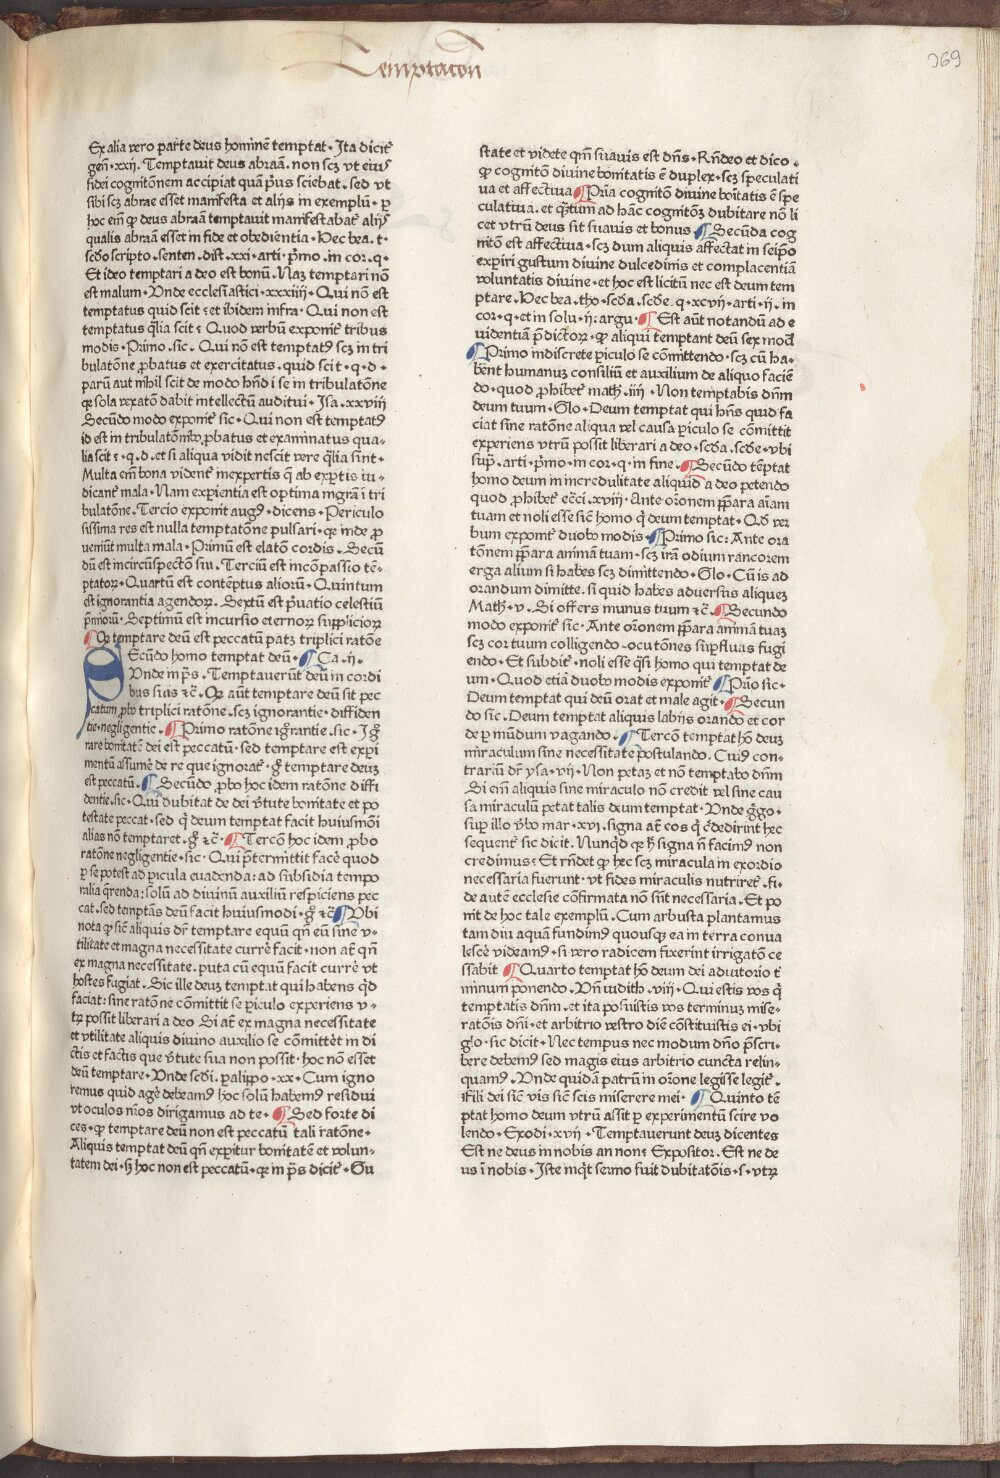 Temptacōn
369
Ex alia vero parte deus hominē temptat · Ita dicit᷑
gen̄ · xxij · Temptauit deus abraā · non scꝫ vt eiuſ
fidei cognitōnem accipiat quā p̄us sciebat · sed vt
sibi scꝫ abrae esset manifesta et alijs in exemplū · ꝑ
hoc em̄ ꝙ deus abraā temptauit manifestabat᷑ alijſ
qualis abraā esset in fide et obedientia · Hec bea · t ·
scd̄o scripto · senten · dist · xxi · arti · p̄mo · in cor · q ·
Et ideo temptari a deo est bonū · Naꝫ temptari nō
est malum · Vnde ecclesiastici · xxxiiij · Qui nō est
temptatus quid scit : et ibidem infra · Qui non est
temptatus q̄lia scit : Quod verbū exponit᷑ tribus
modis · Primo · sic · Qui nō est temptatꝰ scꝫ in tri
bulatōne ꝓbatus et exercitatus · quid scit · q · d ·
parū aut nihil scit de modo hn̄di se in tribulatōne
qꝛ sola vexatō dabit intellectū auditui · Isa · xxviij
Secūdo modo exponit᷑ sic · Qui non est temptatꝰ
id est in tribulatōnibꝰ ꝓbatus et examinatus qua-
lia scit : · q · d · et si aliqua vidit nescit vere q̄lia sint ·
Multa em̄ bona vident᷑ inexpertis q̄ ab exꝑtis iu-
dicant᷑ mala · Nam experientia est optima mgr̄a ī tri
bulatōne · Tercio exponit augꝰ · dicens · Periculo
sissima res est nulla temptatōne pulsari · qꝛ inde ꝓ
ueniūt multa mala · Primū est elatō cordis · Secū
dū est incircūspectō sui · Terciū est incōpassio tē-
ptatoꝝ · Quartū est contēptus aliorū · Quintum
est ignorantia agendoꝝ · Sextū est p̄uatio celestiū
p̄miorū · Septimū est incursio eternoꝝ suppliciorꝝ
¶ Qꝙ temptare deū est peccatū patꝫ triplici ratōe
Secūdo homo temptat deū · ¶ Ca · ij ·
Vnde in ps̄ · Temptauerūt deū in cordi
bus suis ⁊c̄ · Qꝙ aūt temptare deū sit pec
catum ꝓbo triplici ratōne · scꝫ ignorantie · diffiden
tie · negligentie · ¶ Primo ratōne igrātie · sic · Ig
rare bonitatē dei est peccatū · sed temptare est exꝑi
mentū assumē de re que ignorat᷑ · g° temptare deuꝫ
est peccatū · ¶ Secūdo ꝓbo hoc idem ratōne diffi
dentie · sic · Qui dubitat de dei v̄tute bonitate et po
testate peccat · sed q̄ deum temptat facit huiusmōi
alias nō temptaret · g° ⁊c̄ · ¶ Tercō hoc idem ꝓbo
ratōne negligentie · sic · Qui p̄termittit facē quod
ꝑ se potest ad ꝑicula euadenda : ad subsidia tempo
ralia q̄renda : solū ad diuinū auxiliū respiciens pec
cat · sed temptās deū facit huiusmodi · g° ⁊c̄ ¶ Vbi
nota ꝙ sic̄ aliquis dr̄ temptare equū qn̄ eū sine v-
tilitate et magna necessitate currē facit · non at̄ qn̄
ex magna necessitate · puta cū equū facit currē vt
hostes fugiat · Sic ille deuꝫ temptat qui habens qd̄
faciat : sine ratōne cōmittit se ꝑiculo experiens v-
trꝝ possit liberari a deo Si at̄ ex magna necessitate
et vtilitate aliquis diuino auxilio se cōmittēt in di
ctis et factis que v̄tute sua non possit · hoc nō esset
deū temptare · Vnde scd̄i · paliꝑo · xx · Cum igno
remus quid agē debeamꝰ hoc solū habemꝰ residui
vt oculos nr̄os dirigamus ad te · ¶ Sed forte di
ces · ꝙ temptare deū non est peccatū tali ratōne ·
Aliquis temptat deū qn̄ exꝑitur bonitatē et volun-
tatem dei · sꝫ hoc non est peccatū · qꝛ in ps̄ dicit᷑ · Gu
state et videte qm̄ suauis est dn̄s · Rn̄deo et dico ·
ꝙ cognitō diuine bonitatis ē duplex · scꝫ speculati
ua et affectiua ¶ Pria cognitō diuine boītatis ē spe
culatiua · et q̄tum ad hāc cognitōꝫ dubitare nō li
cet vtrū deus sit suauis et bonus ¶ Secūda cog
nitō est affectiua · scꝫ dum aliquis affectat in seip̄o
exꝑiri gustum diuine dulcedinis et complacentiā
voluntatis diuine · et hoc est licitū nec est deum tem
ptare · Hec bea · tho · scd̄a · scd̄e · q · xcvij · arti · ij · in
cor · q · et in solu · ij · argu · ¶ Est aūt notandū ad e
uidentiā p̄dictoꝝ · ꝙ aliqui temptant deū sex mod̄
¶ Primo indiscrete ꝑiculo se cōmittendo · scꝫ cū ha-
bent humanuꝫ consiliū et auxilium de aliquo faciē
do · quod ꝓhibet᷑ math̄ · iiij · Non temptabis dn̄m
deum tuum · Glo · Deum temptat qui hn̄s quid fa
ciat sine ratōne aliqua vel causa ꝑiculo se cōmittit
experiens vtrū possit liberari a deo · scd̄a · scd̄e · vbi
supͣ · arti · p̄mo · in cor · q · in fine · ¶ Secūdo tēptat
homo deum in incredulitate aliquid a deo petendo
quod ꝓhibet᷑ ecc̄i · xviij · Ante or̄onem p̄para aīam
tuam et noli esse sic̄ homo q̄ deum temptat · Qd̄ ver
bum exponit᷑ duobꝰ modis · ¶ Primo sic : Ante ora
tōnem p̄para animā tuam · scꝫ irā odium rancorem
erga alium si habes scꝫ dimittendo · Glo · Cū is ad
orandum dimitte · si quid habes aduersus aliqueꝫ
Math̄ · v · Si offers munus tuum ⁊c̄ · ¶ Secundo
modo exponit᷑ sic · Ante or̄onem p̄para animā tuaꝫ
scꝫ cor tuum colligendo · ocutōnes suꝑfluas fugi
endo · Et subdit᷑ · noli esse q̄si homo qui temptat de
um · Quod etiā duobꝰ modis exponit᷑ ¶ Prio sic ·
Deum temptat qui deū orat et male agit · ¶ Secun
do sic · Deum temptat aliquis labijs orando et cor
de ꝑ mūdum vagando · ¶ Tercō temptat hō deuꝫ
miraculum sine necessitate postulando · Cuiꝰ con-
trariū dr̄ ysa · vij · Non petaꝫ et nō temptabo dn̄m
Si em̄ aliquis sine miraculo nō credit vel sine cau
sa miraculū petat talis deum temptat · Vnde g̊go ·
suꝑ illo v̄bo mar · xvi · signa at̄ eos q̄ c̄dedirint hec
sequent᷑ sic dicit · Nunqd̄ qꝛ h° signa n̄ facimꝰ non
credimus : Et rn̄det ꝙ hec scꝫ miracula in exordio
necessaria fuerunt · vt fides miraculis nutriret᷑ · fi-
de autē ecclesie cōfirmata nō sūt necessaria · Et po
nit de hoc tale exemplū · Cum arbusta plantamus
tam diu aquā fundimꝰ quousqꝫ ea in terra conua
lescē videamꝰ · si vero radicem fixerint irrigatō ce
ssabit ¶ Quarto temptat hō deum dei adiutorio t᷑
minum ponendo · Vn̄ iudith · viij · Qui estis vos q̄
temptatis dn̄m · et ita posuistis vos terminuꝫ mise-
ratōis dn̄i · et arbitrio vestro diē cōstituistis ei · vbi
glo · sic dicit · Nec tempus nec modum dn̄o p̄scri-
bere debemꝰ sed magis eius arbitrio cuncta relin-
quamꝰ · Vnde quidā patrū in or̄one legisse legit᷑ ·
Fili dei sic̄ vis sic̄ scis miserere mei · ¶ Quinto tē
ptat homo deum vtrū assit ꝑ experimentū scire vo
lendo · Exodi · xvij · Temptauerunt deuꝫ dicentes
Est ne deus in nobis an non : Expositor · Est ne de
us ī nobis · Iste inq̄t sermo fuit dubitatōis · s · vtrꝝ